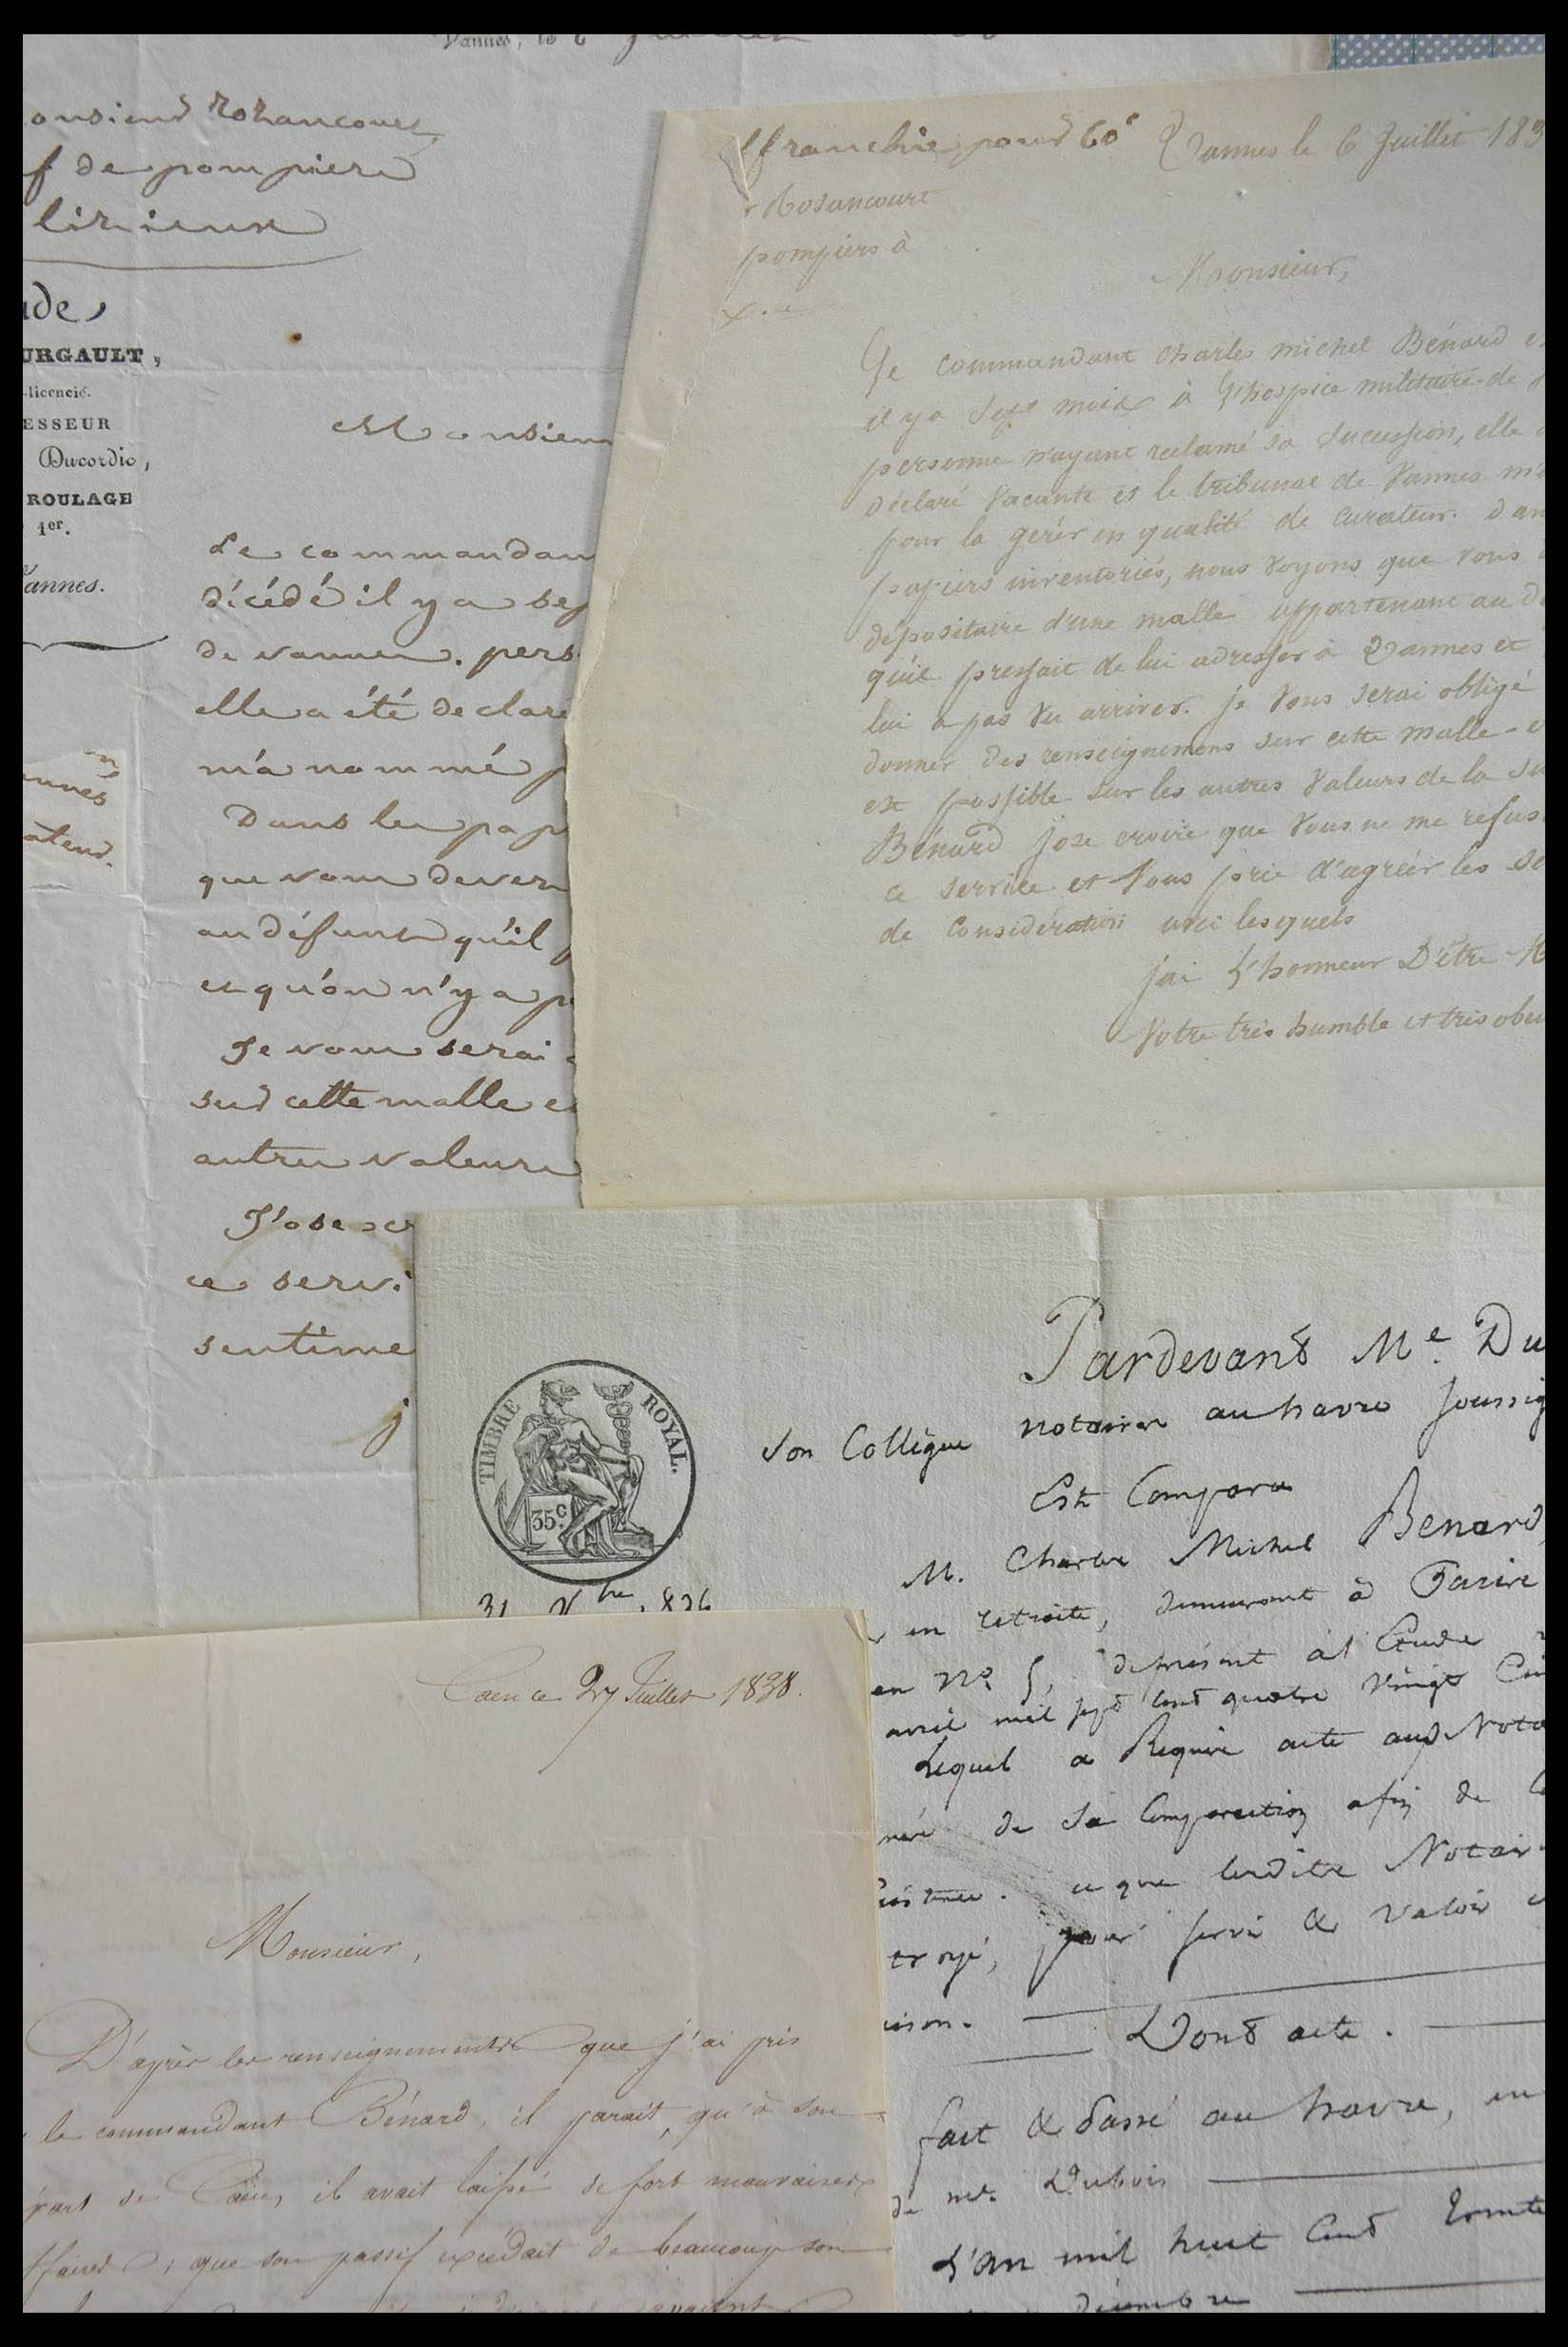 Vannes, le 6 Juillet
onsieur Rozancourt
f de pompiers
lizieux
ude
URGAULT,
-licencié.
ESSEUR
Ducordic,
ROULAGE
1er.
annes.
Monsieur
Le commandan
décédé il y a sep
de vannes. pers
elle a été declaré
m'a nommé p
Dans les pap
que vous deven
au défunt qu'il
et qu'on n'y a p
Je vous serai
sur cette malle e
autres valeurs
J'ose cr
ce servi
sentime
j
ffranchie pour 60c Vannes le 6 Juillet 183
r Rosancourt
pompiers à
Monsieur,
Le commandant charles michel Bénard e
il y a sept mois à l'hospice militaire de
personne n'ayant reclamé sa succession, elle
déclaré vacante et le tribunal de Vannes m'
pour la gerér en qualité de curateur. dan
papiers inventoriés, nous voyons que vous
depositaire d'une malle appartenant au d
qu'il pressait de lui adresser à Vannes et
lui a pas vu arriver. je vous serai obligé
donner des renseignemens sur cette malle e
est possible sur les autres valeurs de la su
Bénard j'ose croire que vous ne me refus
ce service et vous prie d'agréér les se
de considération avec lesquels
j'ai l'honneur D'être M
Votre très humble et très obei
Pardevant Me. Du
notaires au havre soussig
son Collègue
Est Comparu
M. Charles Michel Benard,
en retraite, demeurant à Paris
en No. 5, deprésent à l'Etude
avril mil sept cent quatre vingt Cin
Lequel a Requis acte aux Nota
de sa Comparution afin de
istence. ce que lesdits Notair
troyé, pour servir & valoir
ison.
Dont acte.
fait & Passé au havre, en
de me. Dubois
L'an mil huit Cent trente
décembre
TIMBRE ROYAL.
35c.
31 Xbre 1836
Caen ce 27 Juillet 1838.
Monsieur,
D'après les renseignements que j'ai pris
le commandant Bénard, il parait, qu'à son
part de Caen, il avait laissé de fort mauvaises
ffaires; que son passif excédait de beaucoup son